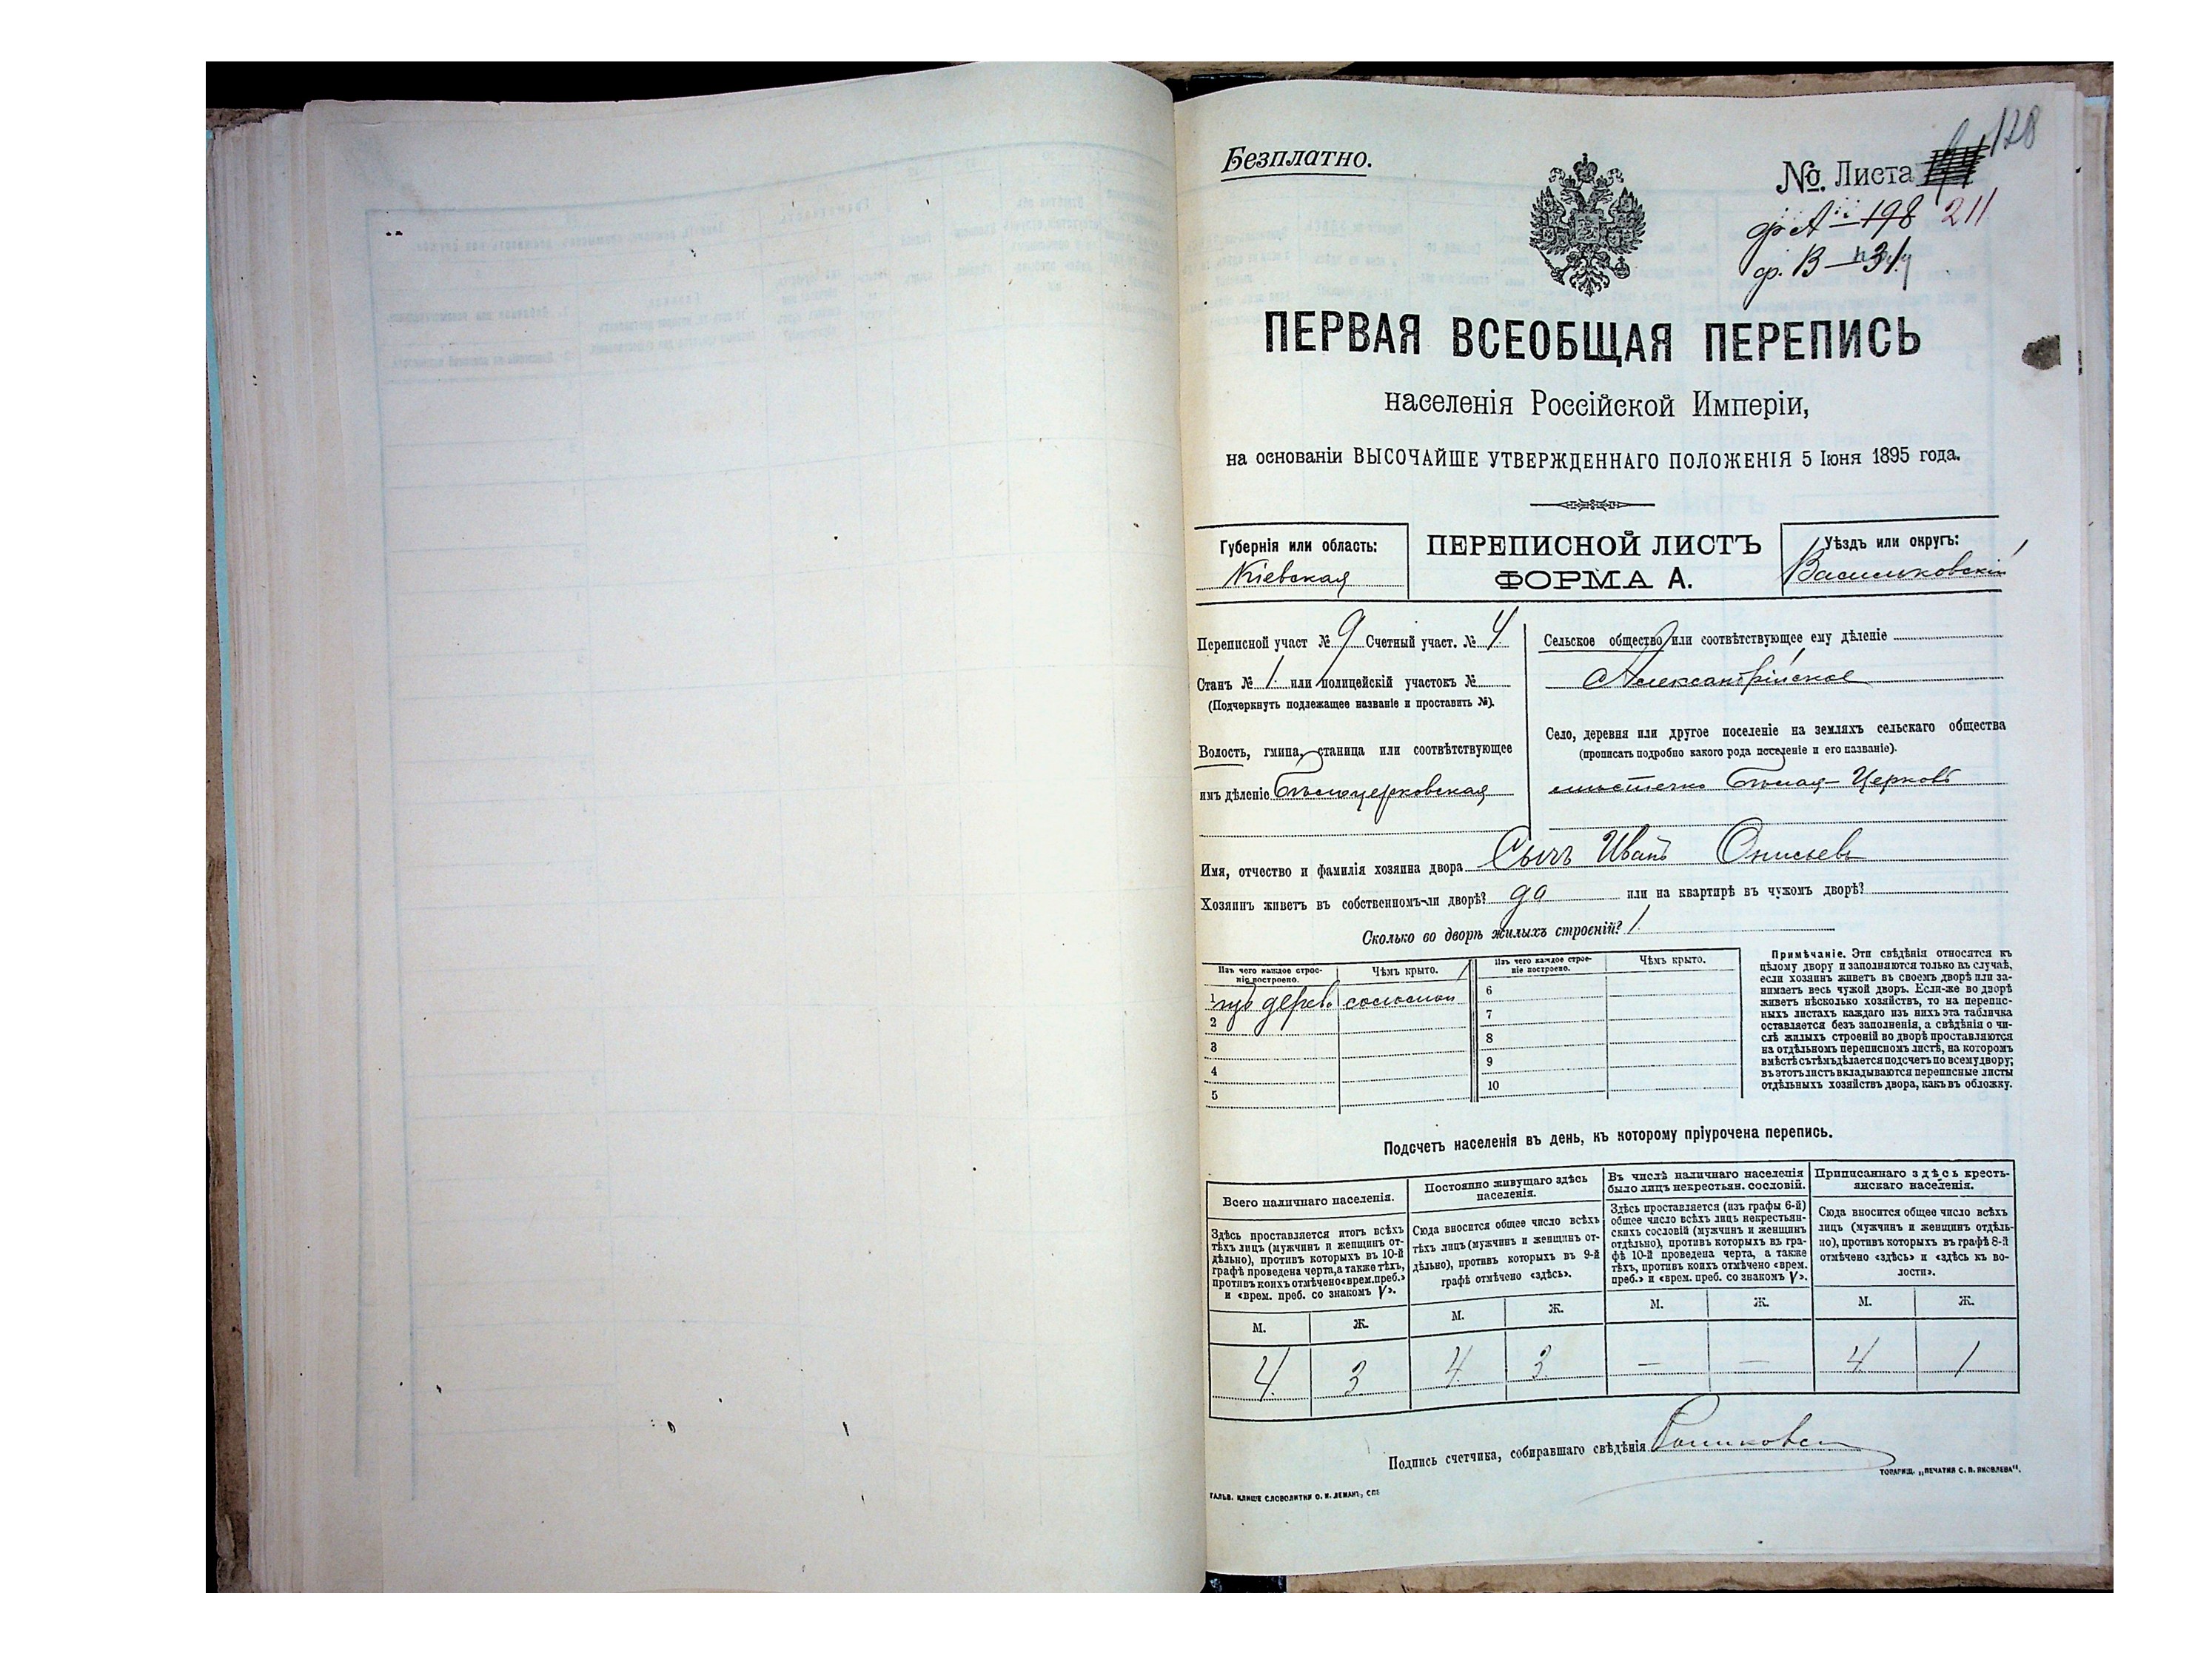 Безплатно.
178
№. Листа
ф. А — 198 211
ф. В — 31
ПЕРВАЯ ВСЕОБЩАЯ ПЕРЕПИСЬ
населенія Россійской Имперіи,
на основаніи ВЫСОЧАЙШЕ УТВЕРЖДЕННАГО ПОЛОЖЕНІЯ 5 Іюня 1895 года.
Губернія или область:
Кіевская
ПЕРЕПИСНОЙ ЛИСТЪ
ФОРМА А.
Уѣздъ или округъ:
Васильковскій
Переписной участ № 9 Счетный участ. № 4
Станъ № 1. или полицейскій участокъ №
(Подчеркнуть подлежащее названіе и проставить №).
Волость, гмина, станица или соотвѣтствующее
имъ дѣленіе Бѣлоцерковская
Сельское общество или соотвѣтствующее ему дѣленіе
Александрійское
Село, деревня или другое поселеніе на земляхъ сельскаго общества
(прописать подробно какого рода поселеніе и его названіе).
мѣстечко Бѣлая-Церковь
Имя, отчество и фамилія хозяина двора Сычъ Иванъ Онисьевъ
Хозяинъ живетъ въ собственномъ-ли дворѣ? да или на квартирѣ въ чужомъ дворѣ?
Сколько во дворѣ жилыхъ строеній? 1.
Изъ чего каждое строе-
ніе построено.
Чѣмъ крыто.
Изъ чего каждое строе-
ніе построено.
Чѣмъ крыто.
1 изъ дерева соломой
2
3
4
5
6
7
8
9
10
Примѣчаніе. Эти свѣдѣнія относятся къ
цѣлому двору и заполняются только въ случаѣ,
если хозяинъ живетъ въ своемъ дворѣ или за-
нимаетъ весь чужой дворъ. Если-же во дворѣ
живетъ нѣсколько хозяйствъ, то на перепис-
ныхъ листахъ каждаго изъ нихъ эта табличка
оставляется безъ заполненія, а свѣдѣнія о чи-
слѣ жилыхъ строеній во дворѣ проставляются
на отдѣльномъ переписномъ листѣ, на которомъ
вмѣстѣ съ тѣмъ дѣлается подсчетъ по всему двору;
въ этотъ листъ вкладываются переписные листы
отдѣльныхъ хозяйствъ двора, какъ въ обложку.
Подсчетъ населенія въ день, къ которому пріурочена перепись.
Всего наличнаго населенія.
Здѣсь проставляется итогъ всѣхъ
тѣхъ лицъ (мужчинъ и женщинъ от-
дѣльно), противъ которыхъ въ 10-й
графѣ проведена черта, а также тѣхъ,
противъ коихъ отмѣчено «врем. преб.»
и «врем. преб. со знакомъ V».
Постоянно живущаго здѣсь
населенія.
Сюда вносится общее число всѣхъ
тѣхъ лицъ (мужчинъ и женщинъ от-
дѣльно), противъ которыхъ въ 9-й
графѣ отмѣчено «здѣсь».
Въ числѣ наличнаго населенія
было лицъ некрестьян. сословій.
Здѣсь проставляется (изъ графы 6-й)
общее число всѣхъ лицъ некрестьян-
скихъ сословій (мужчинъ и женщинъ
отдѣльно), противъ которыхъ въ гра-
фѣ 10-й проведена черта, а также
тѣхъ, противъ коихъ отмѣчено «врем.
преб.» и «врем. преб. со знакомъ V».
Приписаннаго здѣсь кресть-
янскаго населенія.
Сюда вносится общее число всѣхъ
лицъ (мужчинъ и женщинъ отдѣль-
но), противъ которыхъ въ графѣ 8-й
отмѣчено «здѣсь» и «здѣсь къ во-
лости».
М. Ж. М. Ж. М. Ж. М. Ж.
4. 3 4. 3. — — 4. 1
Подпись счетчика, собиравшаго свѣдѣнія
ТОВАРИЩ. „ПЕЧАТНЯ С. П. ЯКОВЛЕВА".
ГАЛЬВ. КЛИШЕ СЛОВОЛИТНИ О. И. ЛЕМАНЪ, СПБ